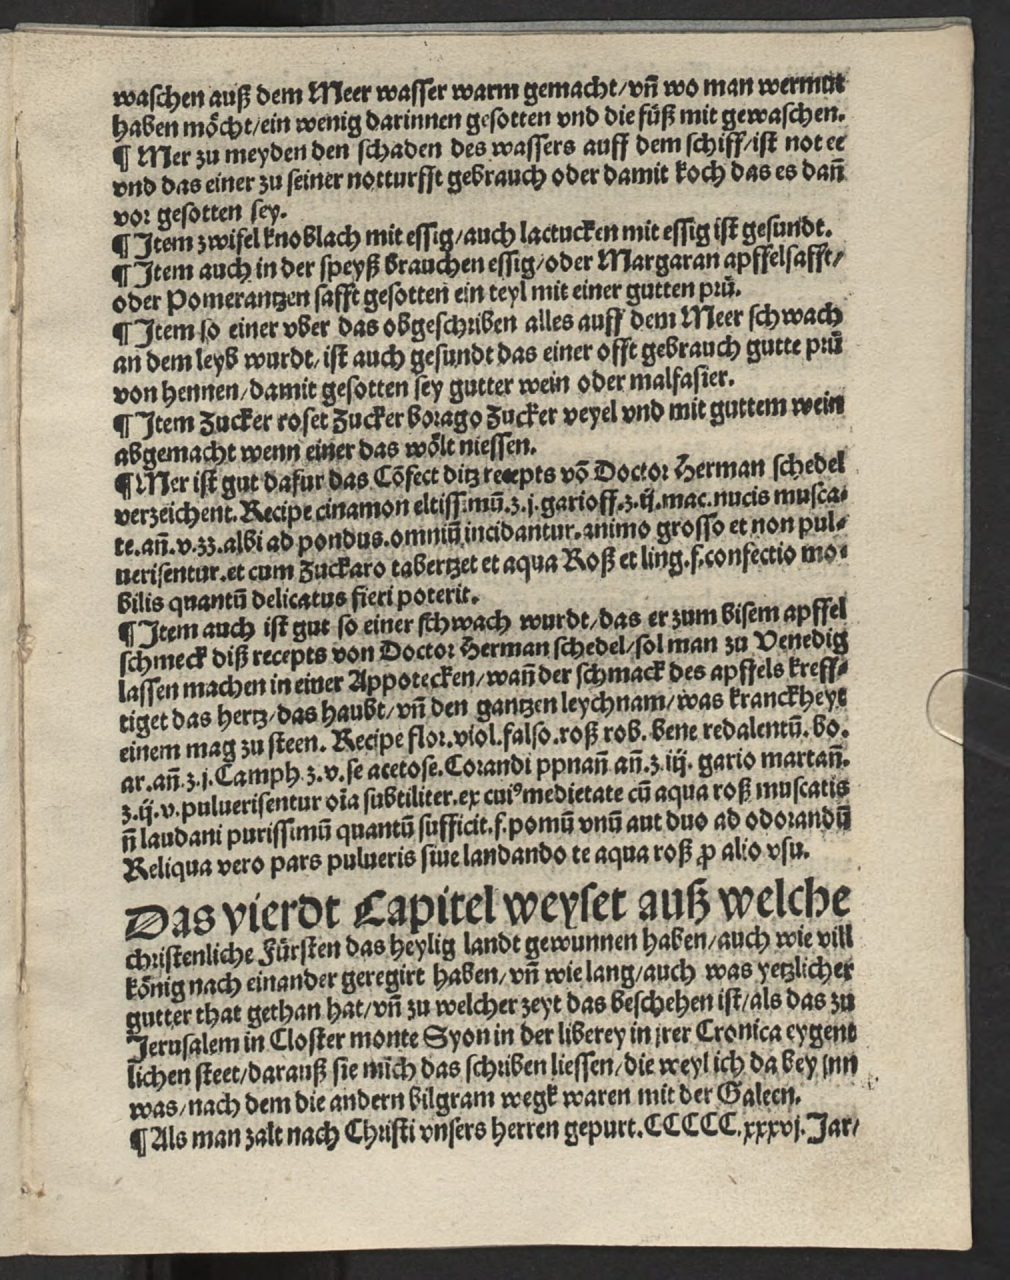 waschen auß dem Meer wasser warm gemacht/vñ wo man wermut
haben möcht/ein wenig darinnen gesotten vnd die füß mit gewaschen.
¶ Mer zu meyden den schaden des wassers auff dem schiff/ist not ee
vnd das einer zu seiner notturfft gebrauch oder damit koch das es dañ
vor gesotten sey.
¶ Item zwifel knoblach mit essig/auch lactucken mit essig ist gesundt.
¶ Item auch in der speyß brauchen essig/oder Margaran apffelsafft/
oder Pomerantzen safft gesotten ein teyl mit einer gutten prü.
¶ Item so einer vber das obgeschriben alles auff dem Meer schwach
an dem leyb wurdt/ist auch gesundt das einer offt gebrauch gutte prü
von hennen/damit gesotten sey gutter wein oder malfasier.
¶ Item Zucker roset Zucker borago Zucker veyel vnd mit guttem wein
abgemacht wenn einer das wölt niessen.
¶ Mer ist gut dafur das Cõfect ditz recepts võ Doctor Herman schedel
verzeichent. Recipe cinamon eltissimũ.ʒ.j.garioff.ʒ.ij.mac.nucis musca⸗
te.añ.v.ʒʒ.albi ad pondus.omniũ incidantur.animo grosso et non pul⸗
uerisentur.et cum Zuckaro tabertzet et aqua Roß et ling.f.confectio mo⸗
bilis quantũ delicatus fieri poterit.
¶ Item auch ist gut so einer schwach wurdt/das er zum bisem apffel
schmeck diß recepts von Doctor Herman schedel/sol man zu Venedig
lassen machen in einer Appotecken/wañ der schmack des apffels kreff⸗
tiget das hertz/das haubt/vñ den gantzen leychnam/was kranckheyt
einem mag zu steen. Recipe flor.viol.falso.roß rob. bene redalentũ. bo.
ar.añ.ʒ.j.Camph.ʒ.v.se acetose.Corandi ppnañ añ.ʒ.iij. gario martañ.
ʒ.ij.v.puluerisentur oĩa subtiliter.ex cuiꝰ medietate cũ aqua roß muscatis
ñ laudani purissimũ quantũ sufficit.f.pomũ vnũ aut duo ad odorandũ
Reliqua vero pars pulueris siue landando te aqua roß ꝓ alio vsu.
Das vierdt Capitel weyset auß welche
christenliche Fürsten das heylig landt gewunnen haben/auch wie vill
könig nach einander geregirt haben/vñ wie lang/auch was yetzlicher
gutter that gethan hat/vñ zu welcher zeyt das beschehen ist/als das zu
Jerusalem in Closter monte Syon in der liberey in jrer Cronica eygent
lichen steet/darauß sie mich das schriben liessen/die weyl ich da bey jnn
was/nach dem die andern bilgram wegk waren mit der Galeen.
¶ Als man zalt nach Christi vnsers herren gepurt.CCCCC.xxxvj.Jar/